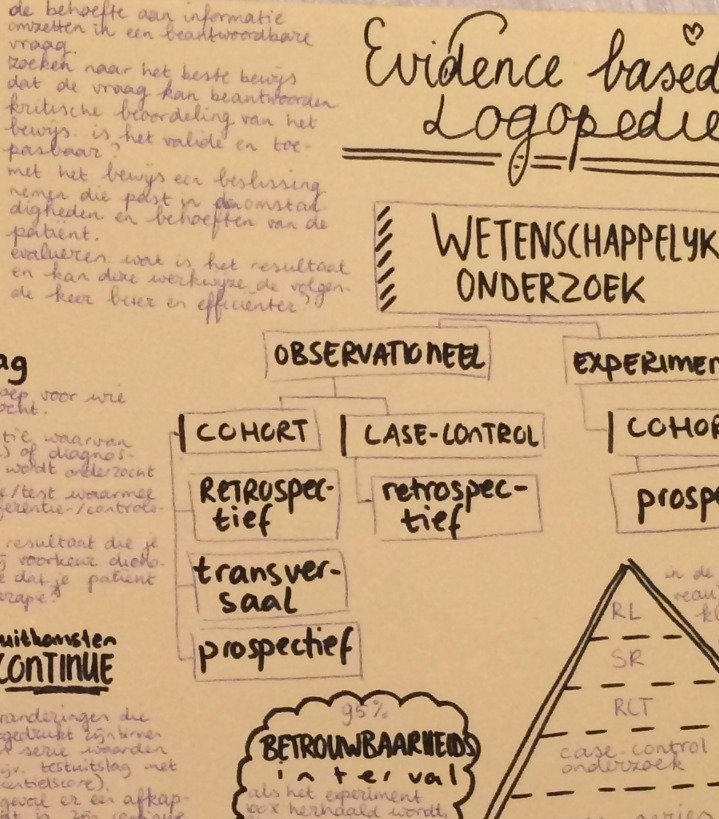 de behoefte aan informatie
omzetten in een beantwoordbare
vraag.
zoeken naar het beste bewijs
dat de vraag kan beantwoorden
kritische beoordeling van het
bewijs. is het valide en toe-
pasbaar?
met het bewijs een beslissing
nemen die past in de omstan-
digheden en behoeften van de
patiënt.
evalueren. wat is het resultaat
en kan deze werkwijze de volgen-
de keer beter en efficiënter?
Evidence based
Logopedie
WETENSCHAPPELYK
ONDERZOEK
OBSERVATIONEEL
EXPERIMEN
COHORT
CASE-CONTROL
COHOR
RETROSPEC-
tief
retrospec-
tief
prospe
transver-
saal
prospectief
ag
oep voor wie
ocht.
tie, waarvan
s of diagnos-
wordt onderzocht
e/test waarmee
ferentie-/controle-
resultaat die je
voorkeur
e dat je patiënt
erapie?
uitkomsten
CONTINUE
randeringen die
gedrukt zijn
serie waarden
testuitslag met
geval er een afkap-
95%
BETROUWBAARHEIDS
interval
als het experiment
100x herhaald wordt,
in de
RL
SR
RCT
case-control
onderzoek
series